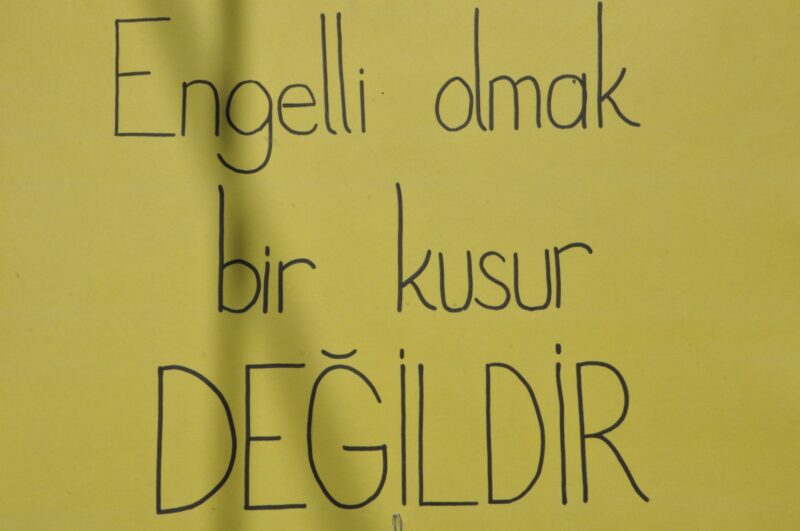 Engelli olmak
bir kusur
DEĞİLDİR